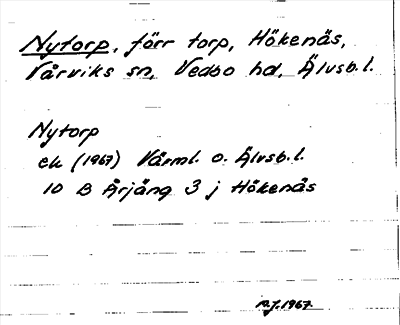 Nytorp, förr torp, Hökenäs,
Vårviks sn, Vedbo hd, Älvsb.l.
Nytorp
ek (1967) Värml. o. Älvsb.l.
10 B Årjäng 3 j Hökenäs
1967